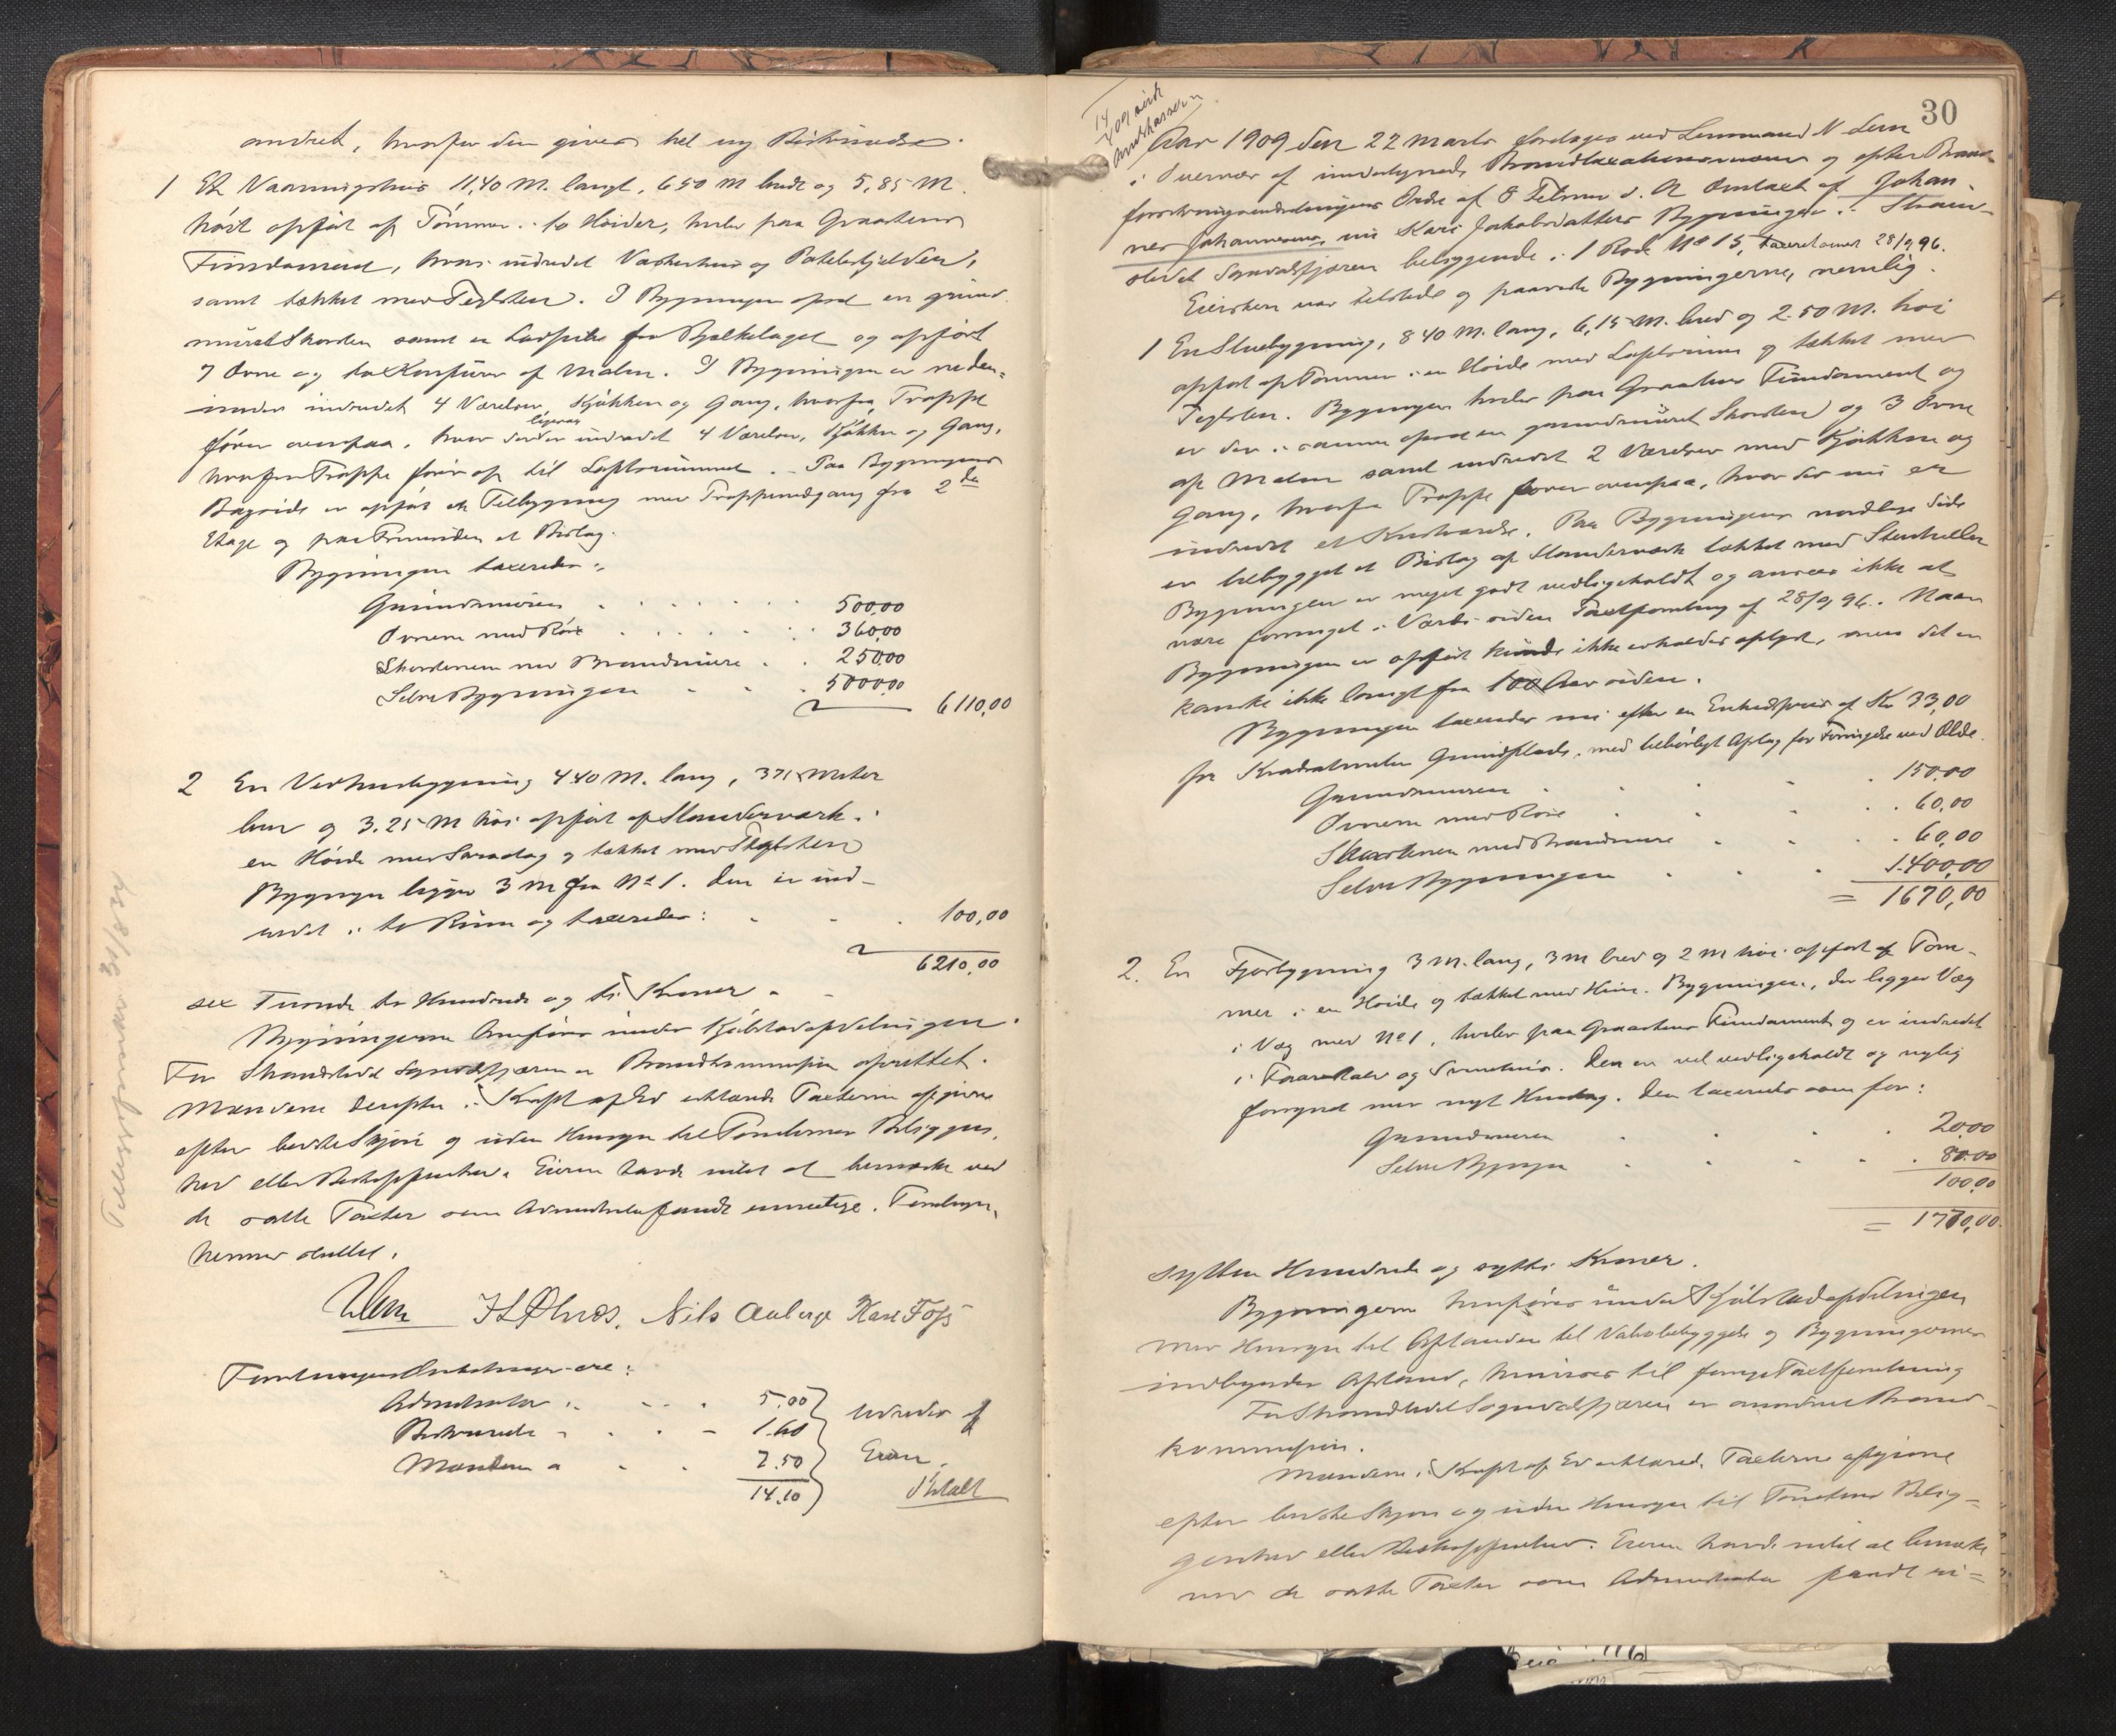 andret, hvorfor den gives hel ny Beskrivelse.
1 Et Vaaningshus 11,40 M. langt, 6.50 M bredt og 5,85 M.
höit opfört af Tömmer i to Höider, hviler paa Graastens
Fundament, hvori indredet Vaskerhus og Potetkjelder,
samt tækket med Teglsten. I Bygningen opsat en grund
muret Skorsten samt en fra Bjælkelaget og opfört
7 Ovne og to Komfurer af Malm. I Bygningen er neden-
under indredet 4 Værelser, Kjökken og Gang, hvorfra Trappe
ligesaa
förer ovenpaa, hvor der er indredet 4 Værelser, Kjökken og Gang,
hvorfra Trappe förer op til Loftsrummet. Paa Bygningens
Bagside er opfört en Tilbygning med Trappenedgang fra 2de
Etage og paa Fremsiden et Bislag.
Bygningen taxeredes:
Grundmuren 500,00
Ovnene med Rör 360,00
Skorstenen med Brandmure 250,00
Selve Bygningen 5000,00
6110,00
2 En Vedhusbygning 4.40 M. lang, 3.71 Meter
bred og 3.25 M höi opfört af Stenderværk i
en Höide med Sperrelag og tækket med Teglsten
Bygningen ligger 3 M fra No 1. Den er ind-
redet i to Rum og taxeredes: 100,00
6210,00
sex Tusende to Hundrede og ti Kroner
Bygningerne henföres under Kjölstadafdelingen.
For Strandstedet Sogndalsfjæren er Brandkommission oprettet.
Mændene derefter i Kraft af Ed erklærede Taxterne afgivne
efter bedste Skjön og uden Hensyn til Tomternes Beliggen-
hed eller Beskaffenhed. Eieren havde intet at bemærke ved
de satte Taxter som Administrator fandt enmedige. Forretnin-
hermed sluttet.
NLem HLÖlnes. Nils Aaberge Karl Foss
Forretningens Omkostninger ere:
Administrator 5.00
Beskrivelse 1.60
Mændene a 2.50 7.50
14.10
udredes af
Eieren.
Betalt
Tillægsforretn. 31/8 24
30
Aar 1909 den 22 Marts foretoges ved Lensmand N Lem
i Overvær af undertegnede Brandtaxationsmænd og efter Brand-
forsikringsindretningens Ordre af 8 Februar d. A Omtaxt af Johan-
nes Johannesens, nu Kari Jakobsdatters Bygninger i Strand-
stedet Sogndalsfjæren beliggende i 1 Rode No 15, taxeret 28/9 96.
Eiersken var tilstede og paaviste Bygningerne, nemlig.
1 En Stuebygning, 8.40 M. lang, 6,15 M. bred og 2.50 M. höi
opfört af Tömmer i en Höide med Loftsrum og tækket med
Teglsten. Bygningen hviler paa Graastens Fundament og
er der i samme opsat en grundmuret Skorsten og 3 Ovne
af Malm samt indredet 2 Værelser med Kjökken og
Gang, hvorfra Trappe förer ovenpaa, hvor der nu er
indredet et Kvistværelse. Paa Bygningens nordlige Side
er tilbygget et Bislag af Stenderværk tækket med Stenheller
Bygningen er meget godt vedligeholdt og ansees ikke at
være forringet i Værdi siden Taxtforretning af 28/9 96. Naar
Bygningen er opfört kunde ikke erholdes oplyst, men det er
kanske ikke langt fra 100 Aar siden.
Bygningen taxeredes nu efter en Enhedspris af Kr 33,00
for Kvadratmeter Grundflade, med behörigt Afslag for Forringelse ved Ælde.
Grundmuren 150,00
Ovnene med Rör 60,00
Skorstenen med Brandmure 60,00
Selve Bygningen 1.400,00
= 1670,00
2. En Fjösbygning 3 M. lang, 3 M bred og 2 M höi opfört af Töm-
mer i en Höide og tækket med Heller. Bygningen, der ligger Væg
i Væg med No 1, hviler paa Graastens Fundament og er indredet
i Faarestald og Svinehus. Den er vel vedligeholdt og nylig
forsynet med nyt Tag. Den taxeredes som för:
Grundmuren 20,00
Selve Bygningen 80.00
100,00
= 1770,00.
sytten Hundrede og sytti Kroner.
Bygningerne henföres under Kjölstadafdelingen
Med Hensyn til Afstanden til Nabobebyggelse og Bygningernes
indbyrdes Afstand, henvises til forrige Taxtforretning
For Strandstedet Sogndalsfjæren er anordnet Brand-
kommission.
Mændene i Kraft af Ed erklærede Taxterne afgivne
efter bedste Skjön og uden Hensyn til Tomternes Belig-
genhed eller Beskaffenhed. Eieren havde intet at bemærke
ved de satte Taxter som Administrator fandt ri-